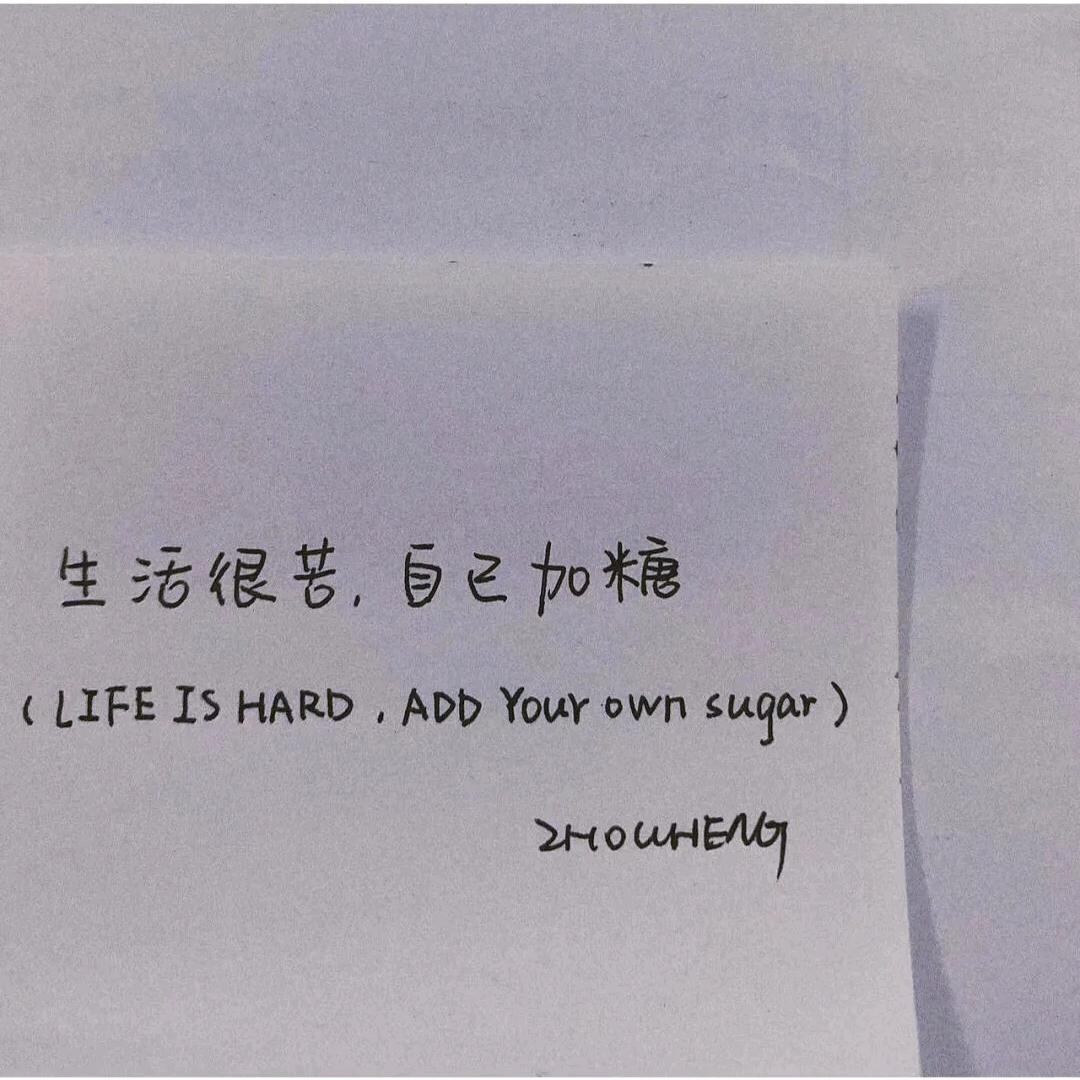 生活很苦，自己加糖
(LIFE IS HARD , ADD Your own sugar)
ZHOUHENG